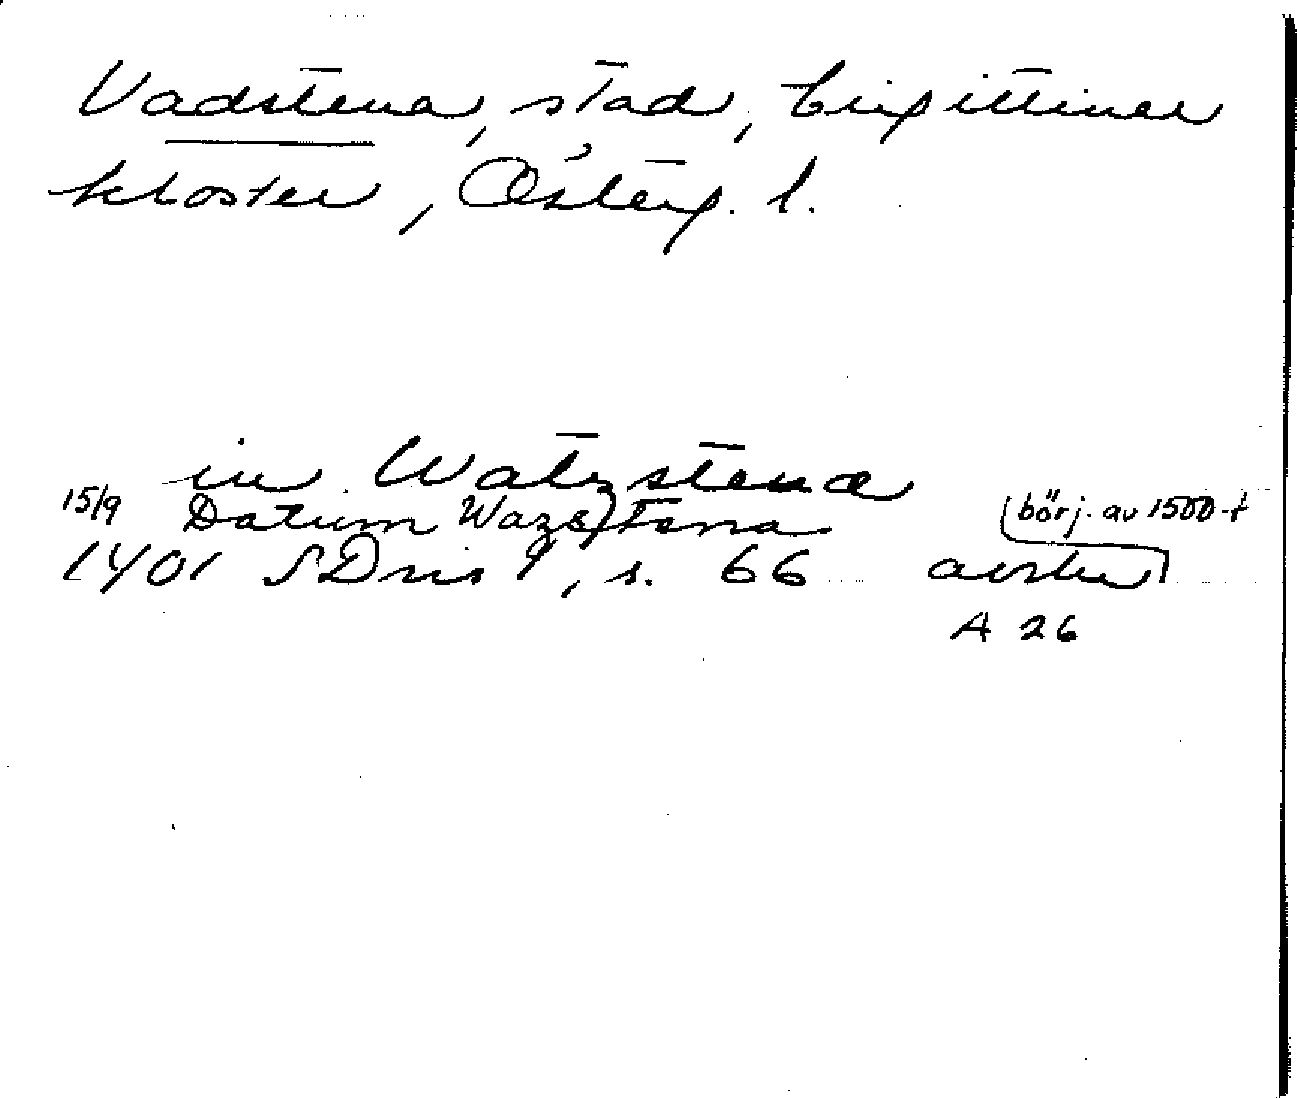 Vadstena, stad, birgittiner
kloster, Österg. l.
in Watzstena
15/9 Datum Wazstena (börj. av 1500-t
1401 SDns 1, s. 66 avskr)
A 26